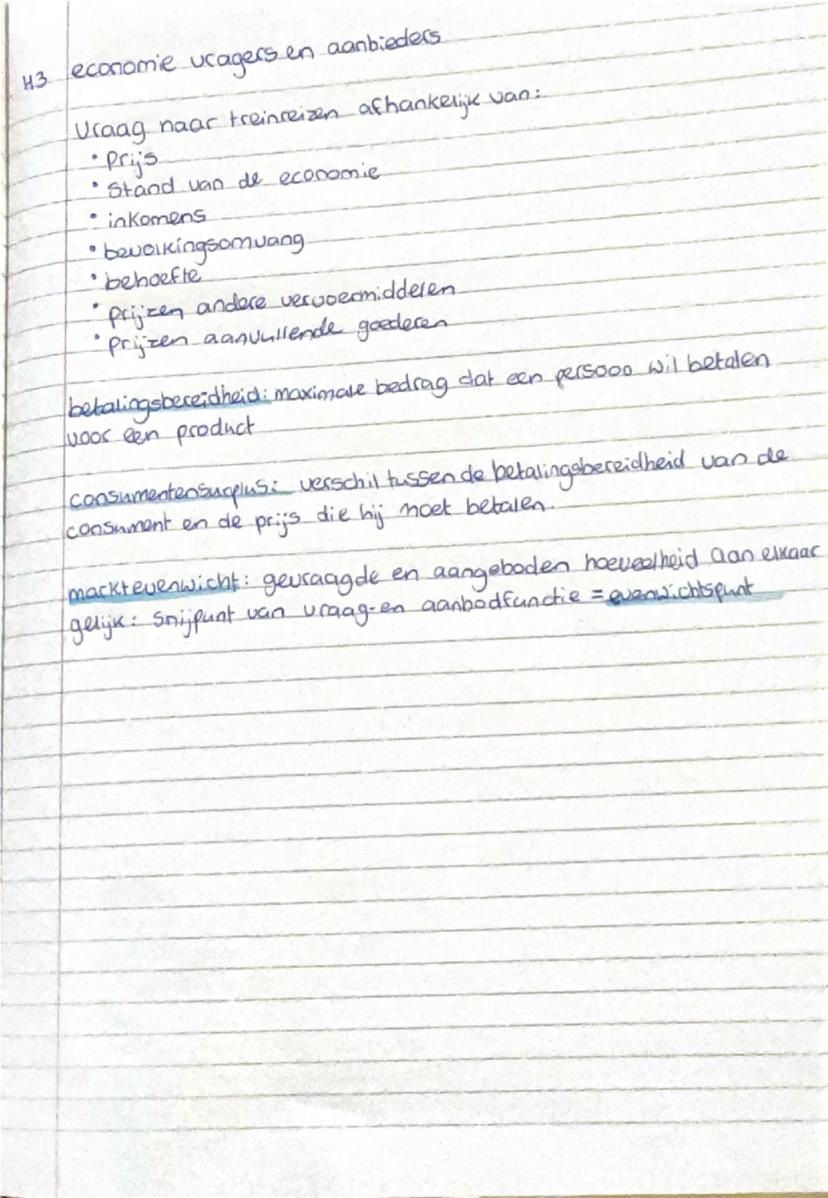 H3 economie vragers en aanbieders
Vraag naar treinreizen afhankelijk van:
• Prijs
• Stand van de economie
• inkomens
• bevolkingsomvang
• behoefte
• prijzen andere vervoermiddelen
• prijzen aanvullende goederen
betalingsbereidheid: maximale bedrag dat een persoon wil betalen
voor een product
consumentensurplus: verschil tussen de betalingsbereidheid van de
consument en de prijs die hij moet betalen.
marktevenwicht: gevraagde en aangeboden hoeveelheid aan elkaar
gelijk: snijpunt van vraag-en aanbodfunctie = evenwichtspunt